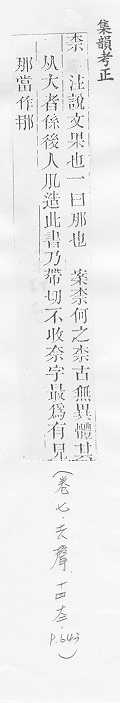 集韻考正
柰　注說文果也一曰那也　案柰何之柰古無異體其
从大者係後人肊造此書乃帶切不收奈字最爲有見
那當作𨙻
（卷七．去聲．十四夳．p.643）